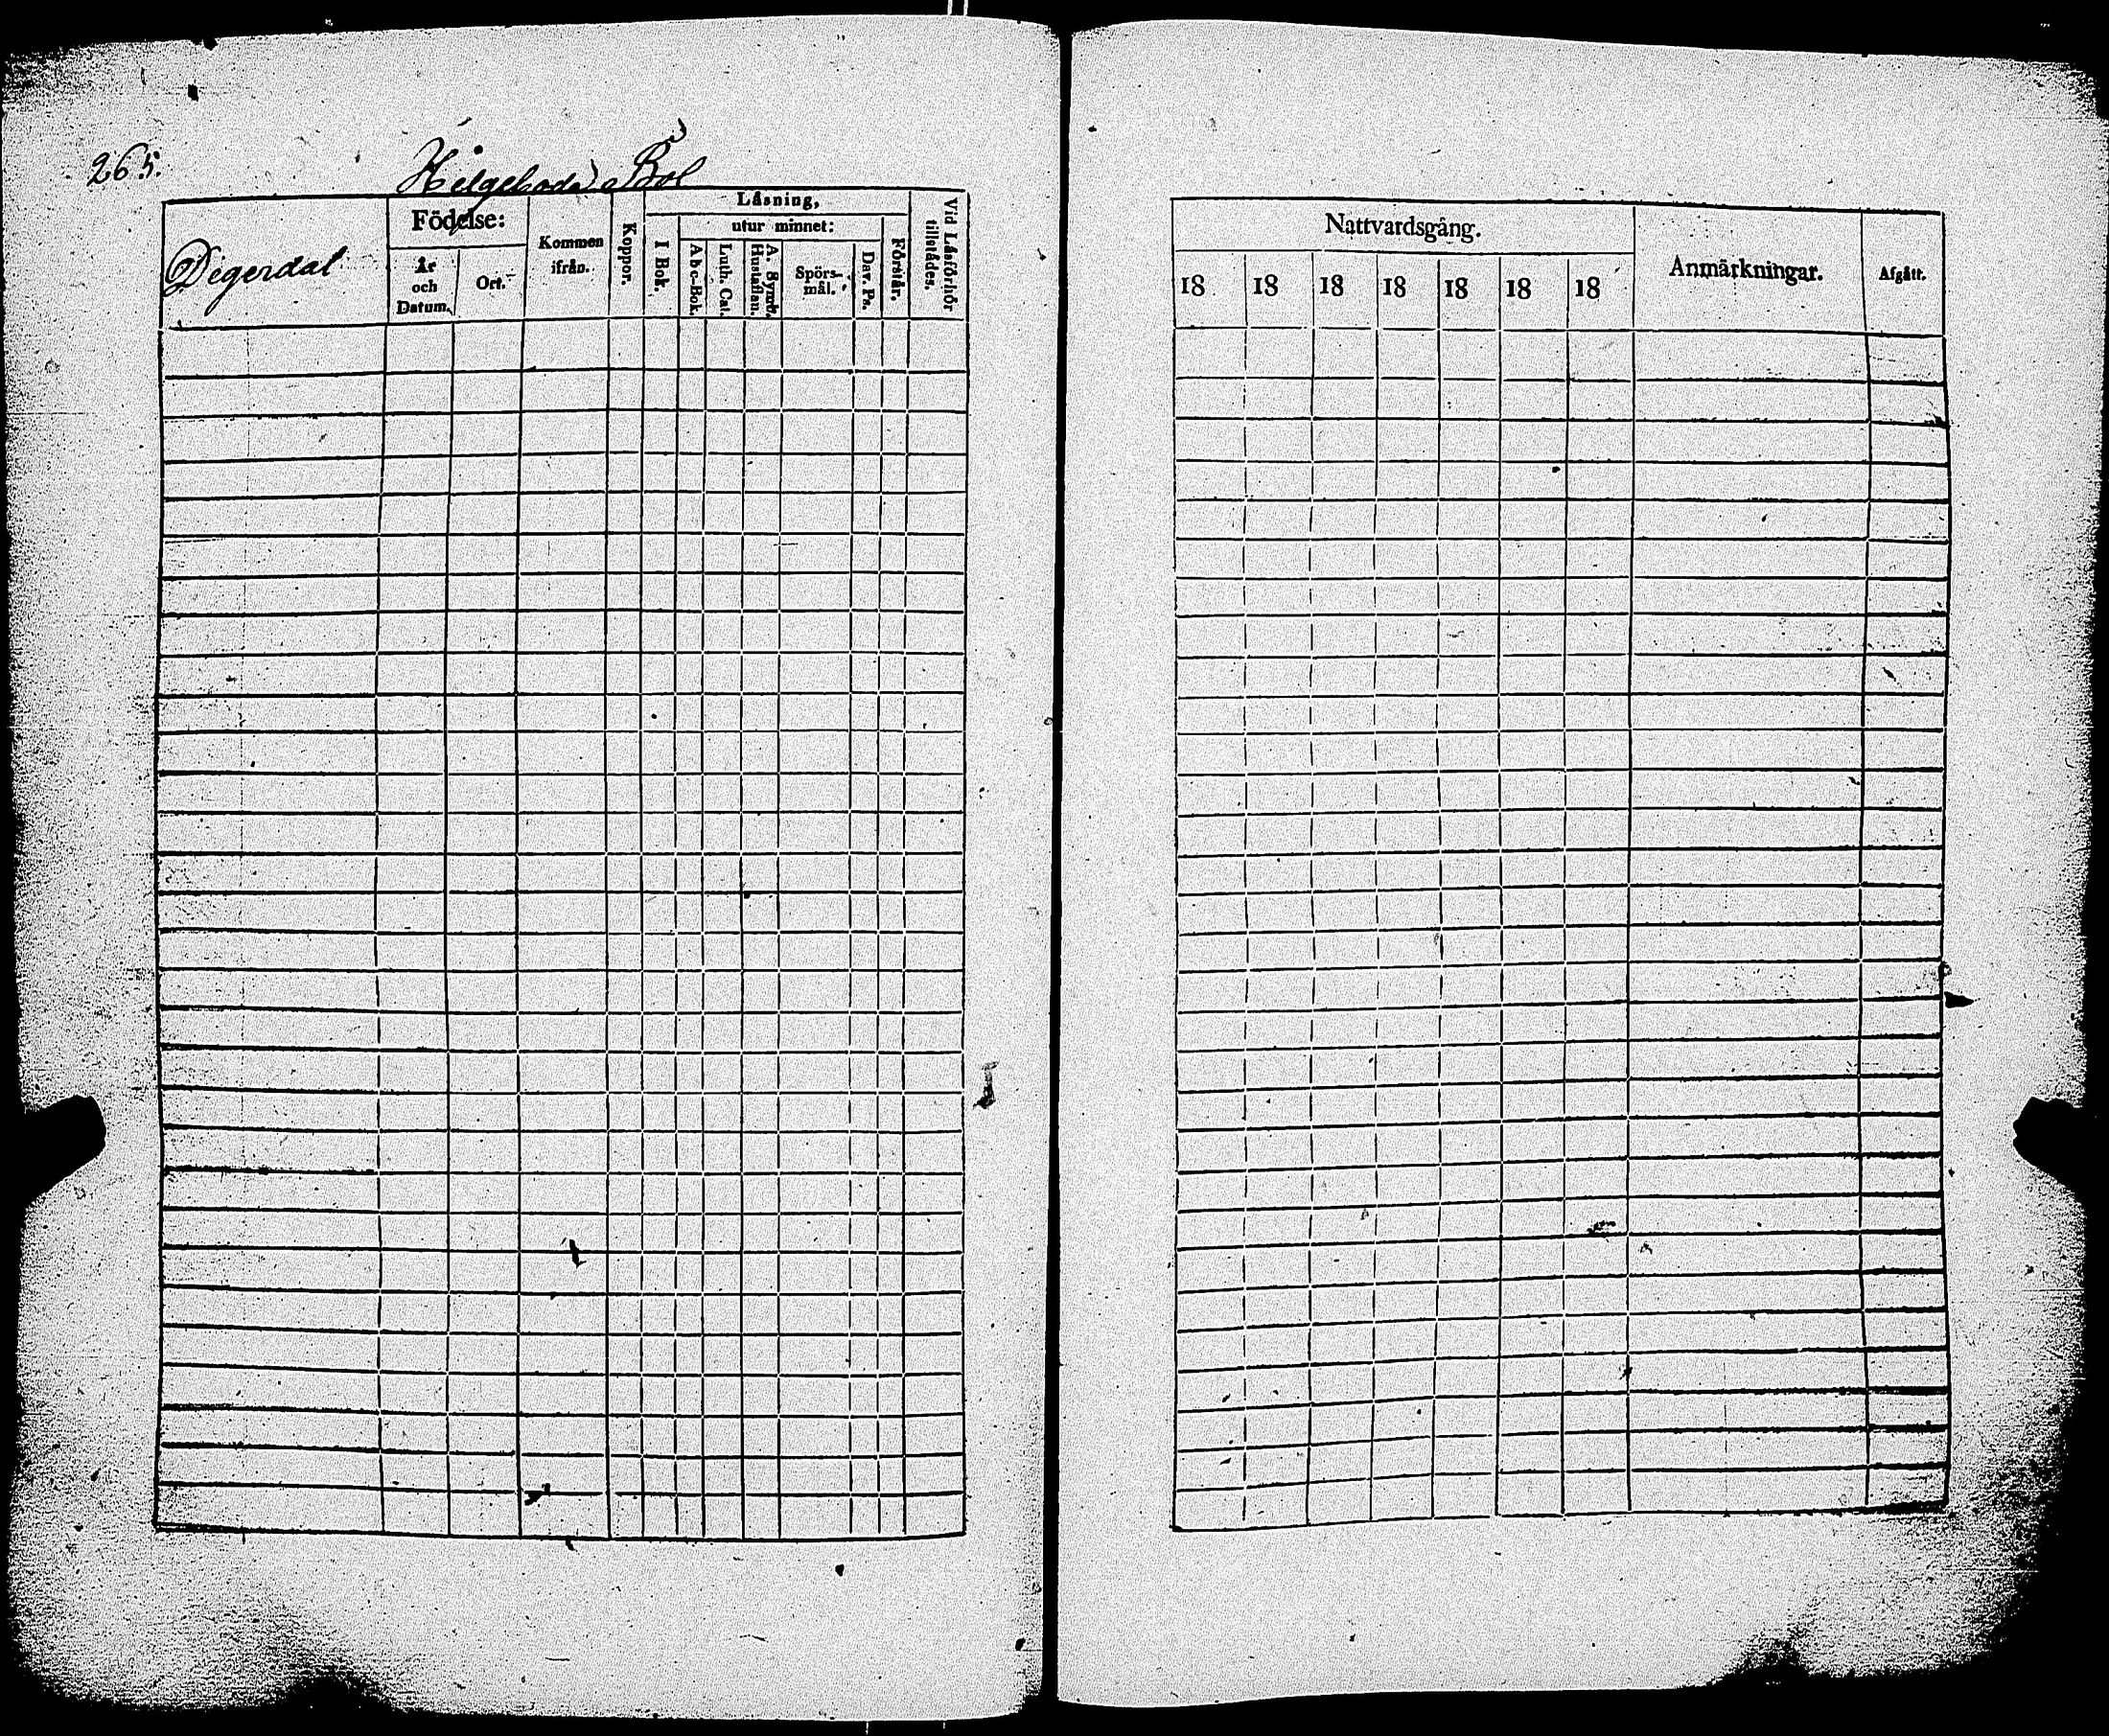 265.
Helgeboda Bol
Digerdal
Födelse:
År och Datum.
Ort.
Kommen ifrån.
Koppor.
Låsning,
utur minnet:
I Bok.
Abc-Bok.
Luth. Cat.
A. Symb. Hustaflan.
Spörsmål.
Dav. Ps.
Förstår.
Vid Låsförhör tillstådes.
Nattvardsgång.
18 18 18 18 18 18 18
Anmärkningar.
Afgått.